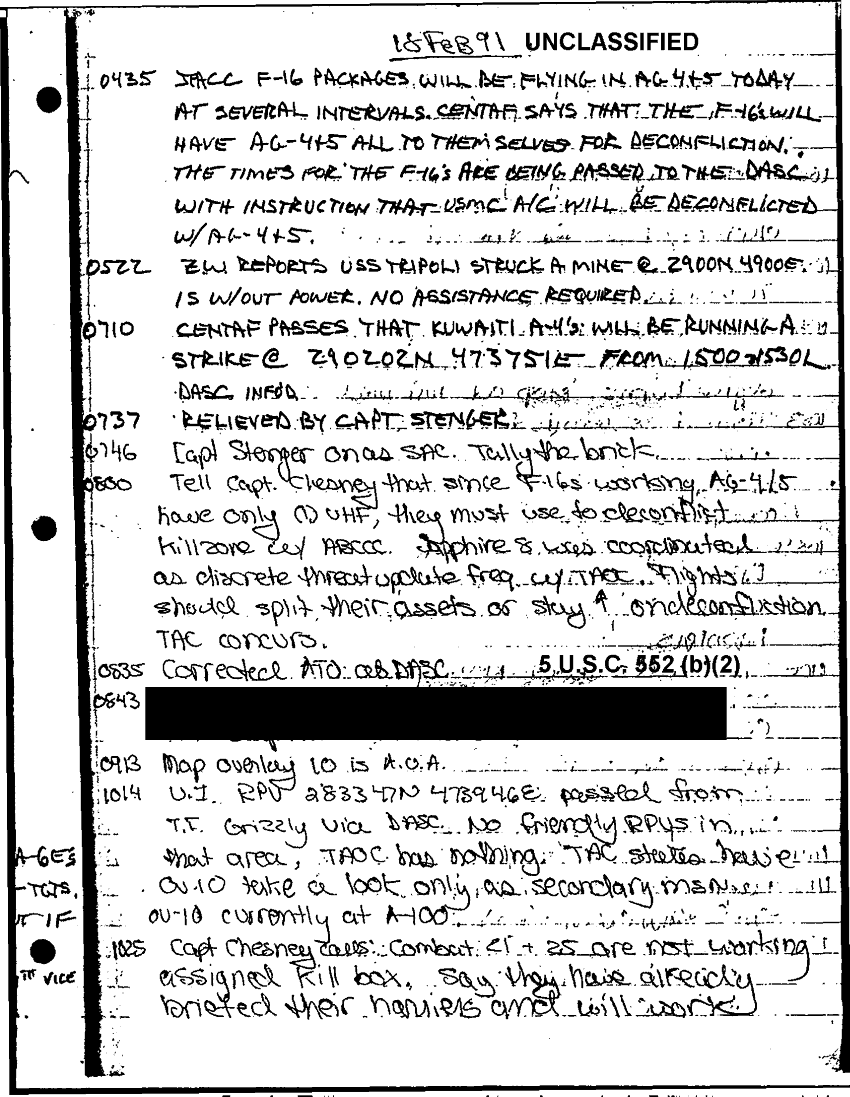 18 FEB 91 UNCLASSIFIED
0435 JACC F-16 PACKAGES WILL BE FLYING IN AG 4+5 TODAY
AT SEVERAL INTERVALS. CENTAF SAYS THAT THE F-16's WILL
HAVE AG-4+5 ALL TO THEMSELVES FOR DECONFLICTION.
THE TIMES FOR THE F-16's ARE BEING PASSED TO THE DASC
WITH INSTRUCTION THAT USMC A/C WILL BE DECONFLICTED
W/AG-4+5.
0522 REPORTS USS TRIPOLI STRUCK A MINE @ 2900N 4900E.
IS W/OUT POWER. NO ASSISTANCE REQUIRED.
0710 CENTAF PASSES THAT KUWAITI A-4's WILL BE RUNNING A
STRIKE @ 290202N 473751E FROM 1500-1530L
DASC INFO'D
0737 RELIEVED BY CAPT STENGER
0746 Capt Stenger on as SAC. Tally the brick
0800 Tell Capt. Chesney that since F-16s working AG-4/5
have only (1) UHF, they must use to deconflict
killzone w/ ABCCC. Sapphire 8 was coordinated
as discrete threat update freq w/ TAOC. Flights
should split their assets or stay ↑ on deconfliction
TAC concurs.
0835 Corrected ATO DASC 5 U.S.C. 552 (b)(2)
0843
0913 Map overlay 10 is A.O.A.
1014 U.I. RPV 283347N 473946E passed from
T.T. Grizzly via DASC. No friendly RPVs in
that area, TAOC has nothing. TAC states have
OV-10 take a look only, as secondary msn
OV-10 currently at A-100
1025 Capt Chesney calls: Combat 21 + 25 are not working
assigned Kill box. Say they have already
briefed their harriers and will work
A-6E's
-TGTS.
IF
VICE